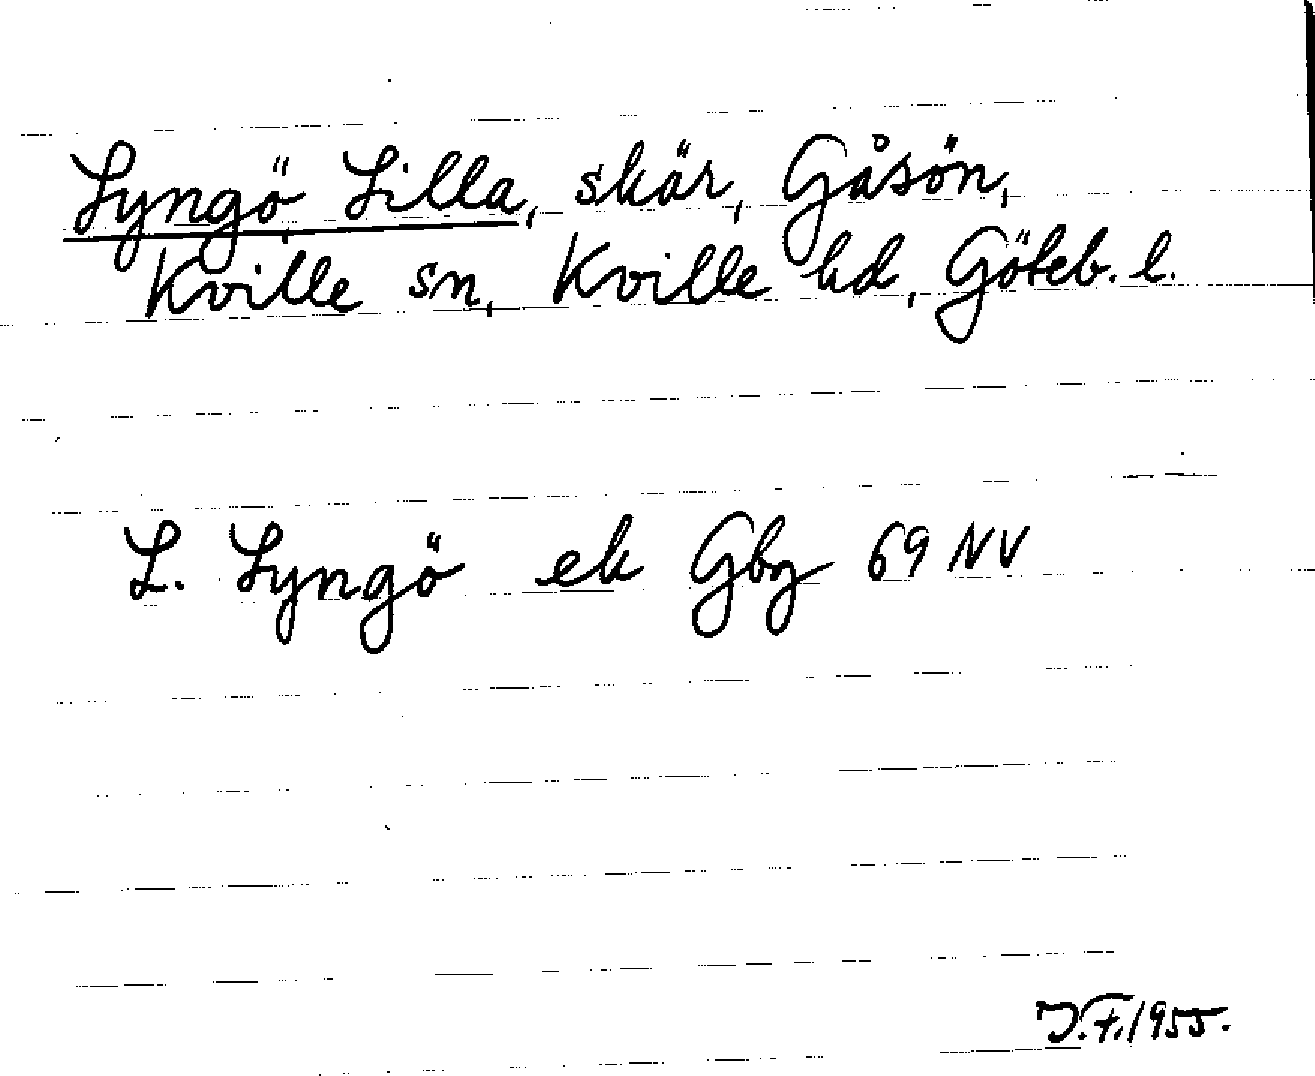 Lyngö, Lilla, skär, Gåsön,
Kville sn, Kville hd, Göteb. l.
L. Lyngö ek Gbg 69 NV
J.F. 1955.